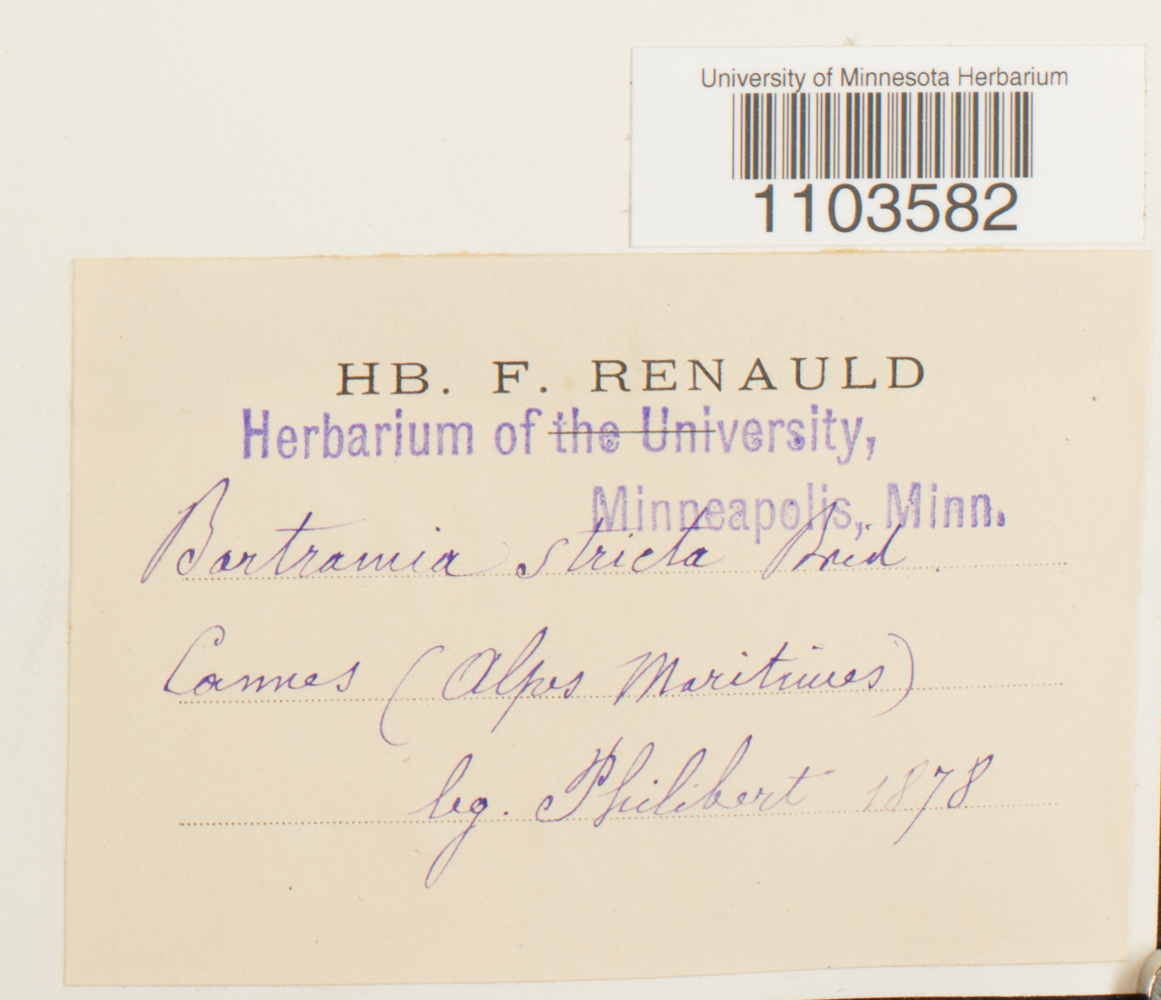 University of Minnesota Herbarium
1103582
HB. F. RENAULD
Herbarium of the University,
Minneapolis, Minn.
Bartramia stricta Brid.
Cannes (Alpes Maritimes)
leg. Philibert 1878